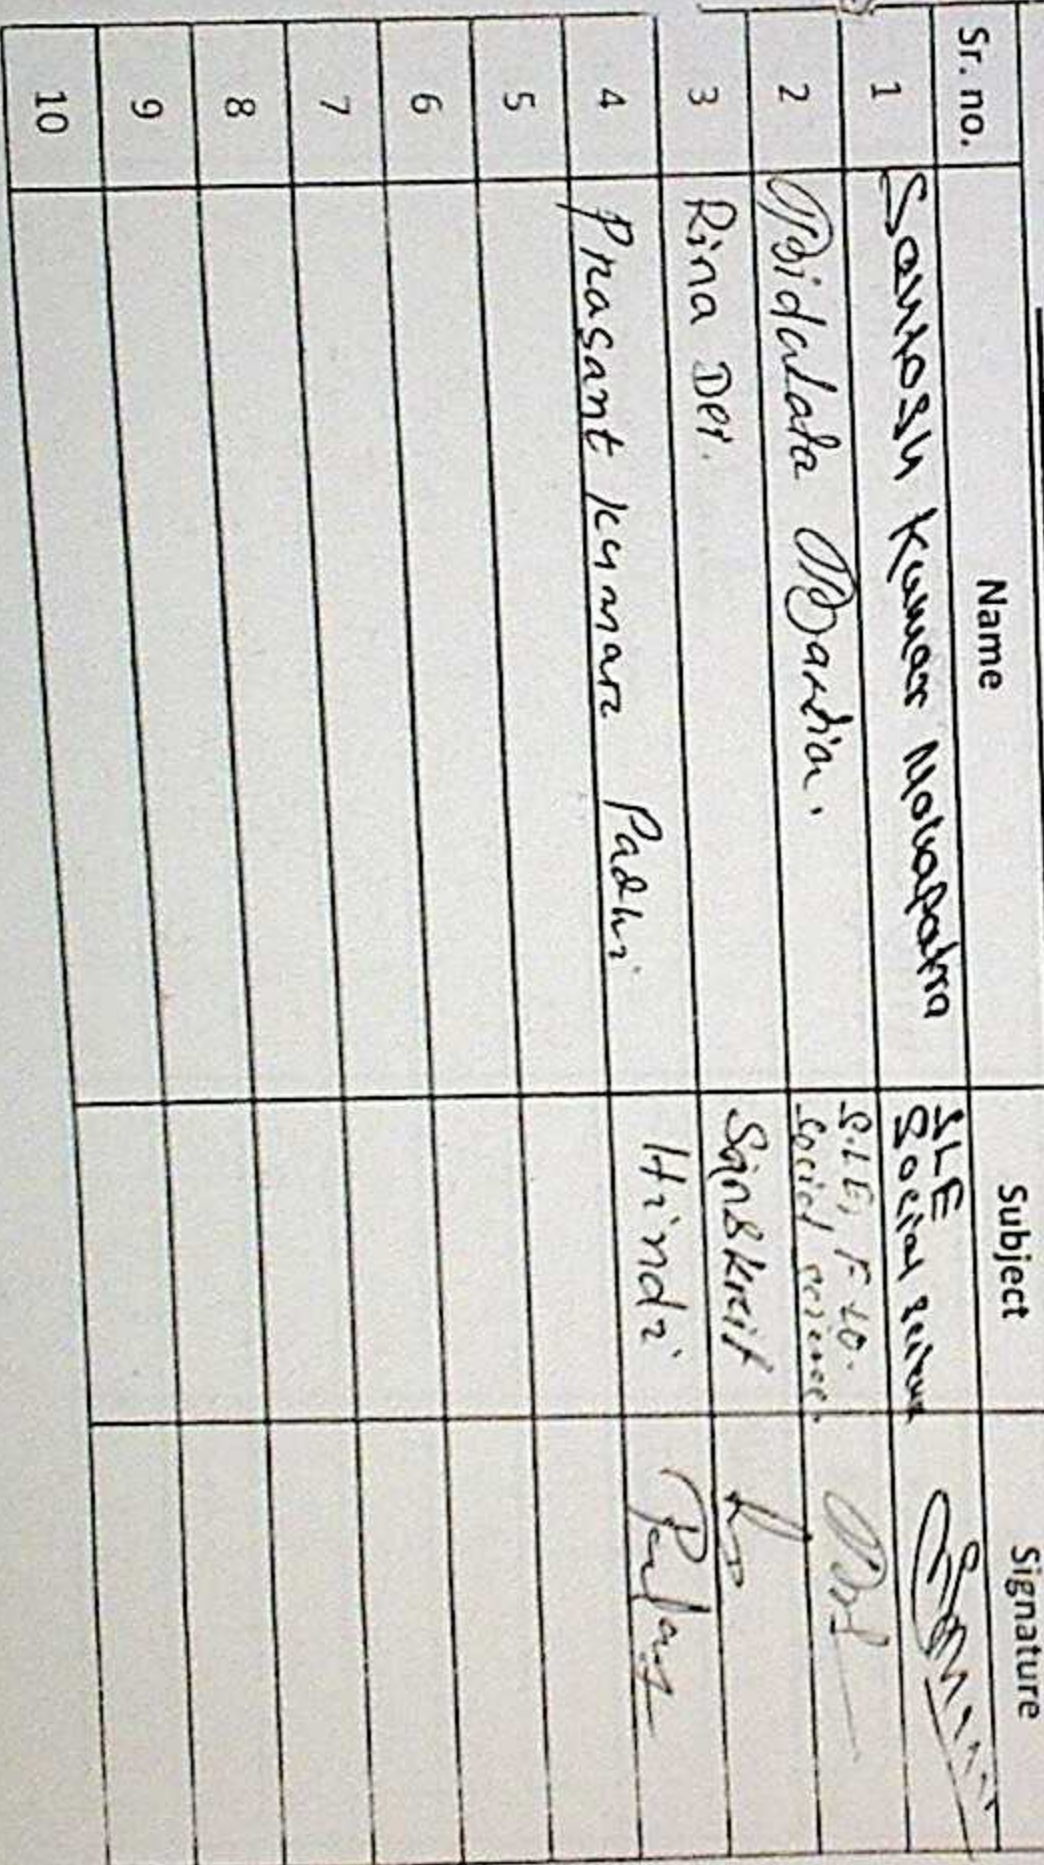 Sr. no. Name Subject Signature
1 Santosh Kumar Mohapatra SLE Social Science
2 Bidulata Bardia. S.L.E, F.LO. Social science.
3 Rina Dei. Sanskrit
4 Prasant Kumar Padhi Hindi
5
6
7
8
9
10